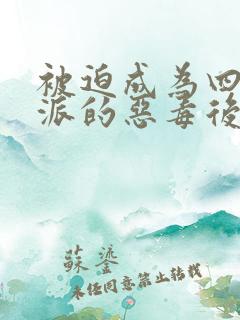 被迫成為四
派的惡毒後
蘇鎏
未經同意禁止轉載